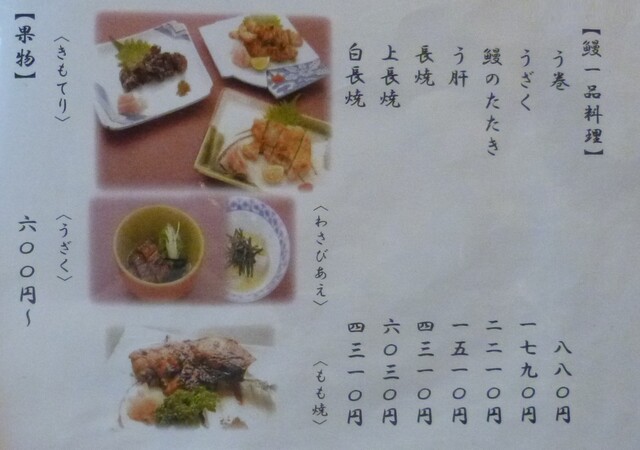 【鰻一品料理】
う巻 八八〇円
うざく 一七九〇円
鰻のたたき 二二一〇円
う肝 一五一〇円
長焼 四三一〇円
上長焼 六〇三〇円
白長焼 四三一〇円
〈わさびあえ〉
〈もも焼〉
〈きもてり〉
〈うざく〉
【果物】 六〇〇円〜